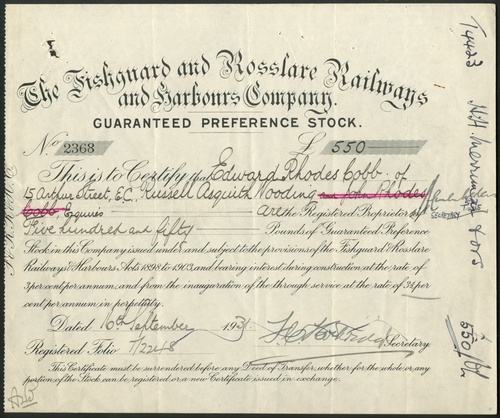 The Fishguard and Rosslare Railways
and Harbours Company.
GUARANTEED PREFERENCE STOCK.
No 2368 £ 550
This is to Certify that Edward Rhodes Cobb of
15 Arthur Street, E.C. Russell Asquith Wooding and John Rhodes
Cobb, Esquires are the Registered Proprietors of
Five hundred and fifty Pounds of Guaranteed Preference
Stock in this Company issued under and subject to the provisions of the Fishguard & Rosslare
Railways & Harbours Acts 1898 to 1903, and bearing interest during construction at the rate of
3 per cent per annum, and from the inauguration of the through service at the rate of 3½ per
cent per annum in perpetuity.
Dated 16th September 1931
Registered Folio 7/2248 Secretary
This Certificate must be surrendered before any Deed of Transfer, whether for the whole or any
portion of the Stock can be registered or a new Certificate issued in exchange.
SECRETARY
T4423
550